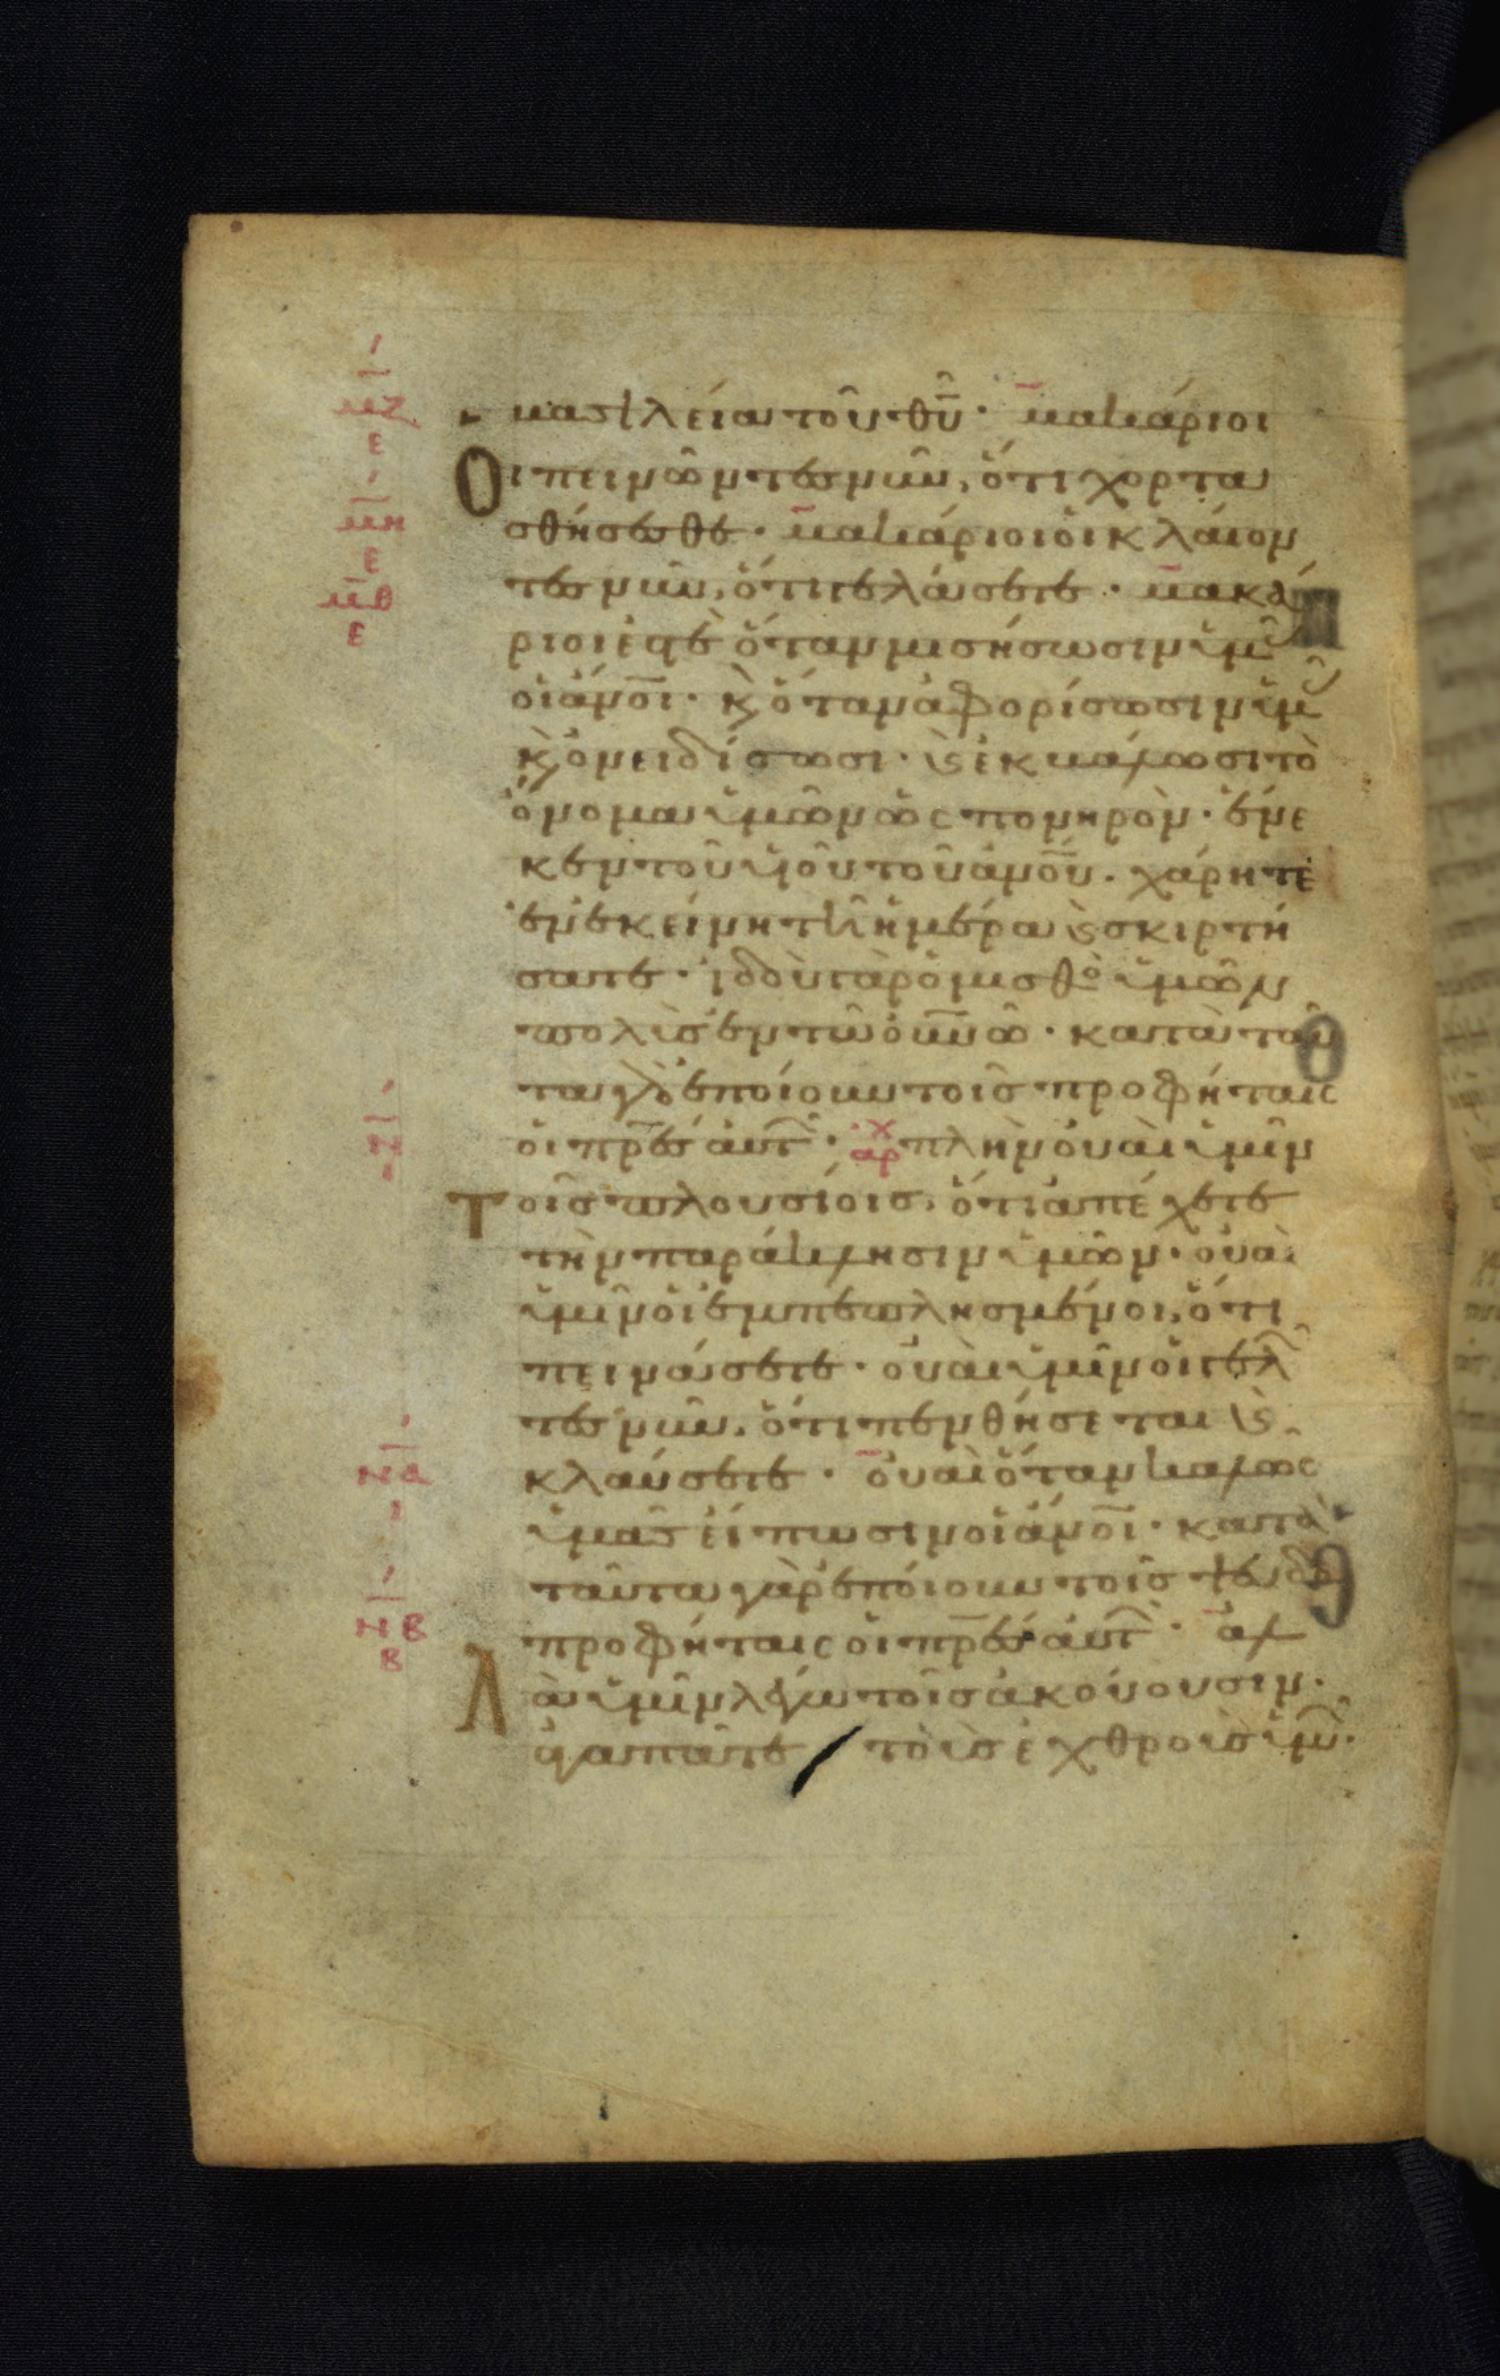 βασιλεία τοῦ θῦ· μακάριοι
Οι πεινῶντες νῦν, ὅτι χορτα
σθήσεσθε· μακάριοι οἱ κλαίον
τες νῦν, ὅτι γελάσετε· μακά
ριοι ἐστὲ ὅταν μισήσωσιν ὑμ
οἱ ἄνοι· κ ὅταν ἀφορίσωσιν ὑμ
κ ὀνειδίσωσι· κ ἐκβάλωσι τὸ
ὄνομα ὑμῶν ὡς πονηρὸν· ἕνε
κεν τοῦ υἱοῦ τοῦ ἀνου· χάρητε
ἐν ἐκείνη τῆ ἡμέρα κ σκιρτή
σατε· ἰδοὺ γὰρ ὁ μισθὸ ὑμῶν
πολὺς ἐν τῶ οὐνω· κατὰ ταῦ
τα γὰρ ἐποίουν τοῖς προφήταις
οἱ πρες αὐτ· αρχ πλὴν οὐαὶ ὑμῖν
Τοῖς πλουσίοις, ὅτι ἀπέχετε
τὴν παράκλησιν ὑμῶν· οὐαὶ
ὑμῖν οἱ ἐμπεπλησμένοι, ὅτι
πεινάσετε· οὐαὶ ὑμῖν οἱ γελ
τες νῦν, ὅτι πενθήσεται κ
κλαύσετε· οὐαὶ ὅταν καλῶς
ὑμᾶς εἴπωσιν οἱ ἄνοι· κατὰ
ταῦτα γὰρ ἐποίουν τοῖς ψευδο
προφήταις οἱ πρες αὐτ· ἀλ
Λὰ ὑμῖν λέγω τοῖς ἀκούουσιν·
ἀγαπᾶτε τοὶς ἐχθροὶς ὑμ·
μζ
ε
μη
ε
μθ
ε
ν
να
ι
νβ
β